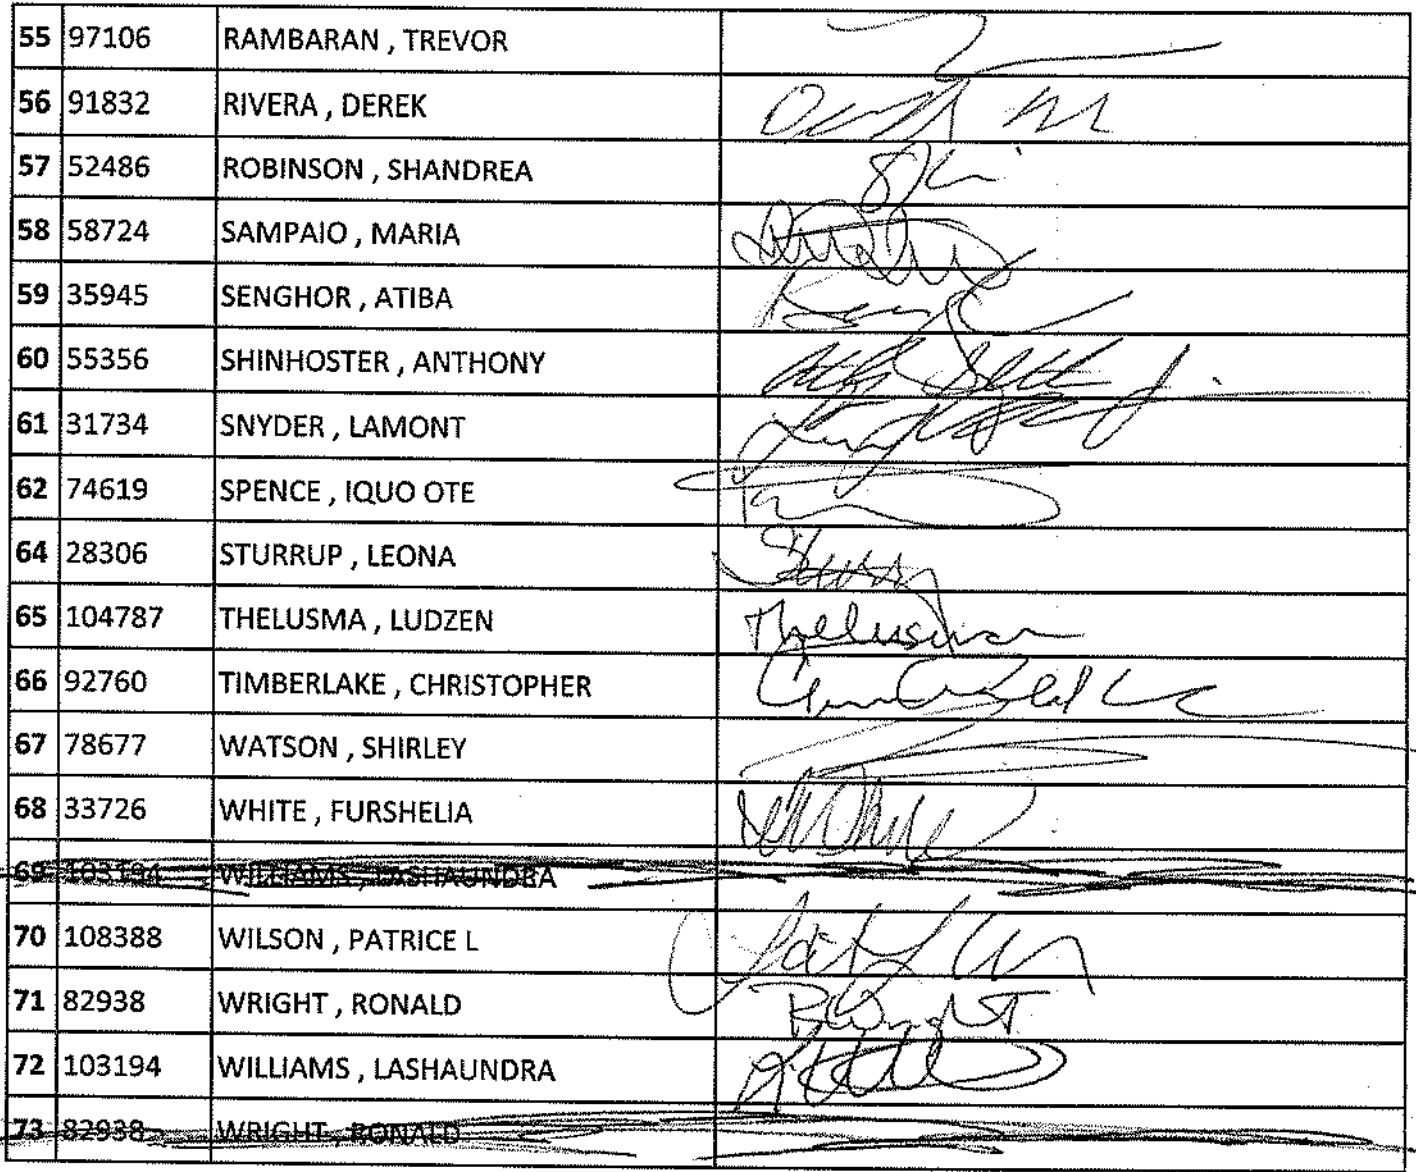 55 97106 RAMBARAN , TREVOR
56 91832 RIVERA , DEREK
57 52486 ROBINSON , SHANDREA
58 58724 SAMPAIO , MARIA
59 35945 SENGHOR , ATIBA
60 55356 SHINHOSTER , ANTHONY
61 31734 SNYDER , LAMONT
62 74619 SPENCE , IQUO OTE
64 28306 STURRUP , LEONA
65 104787 THELUSMA , LUDZEN Thelusma
66 92760 TIMBERLAKE , CHRISTOPHER
67 78677 WATSON , SHIRLEY
68 33726 WHITE , FURSHELIA
69 103194 WILLIAMS , LASHAUNDRA
70 108388 WILSON , PATRICE L
71 82938 WRIGHT , RONALD
72 103194 WILLIAMS , LASHAUNDRA
73 82938 WRIGHT , RONALD